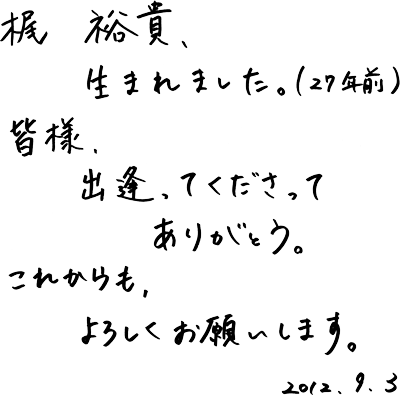 梶 裕貴、
生まれました。(27年前)
皆様、
出逢ってくださって
ありがとう。
これからも、
よろしくお願いします。
2012.9.3